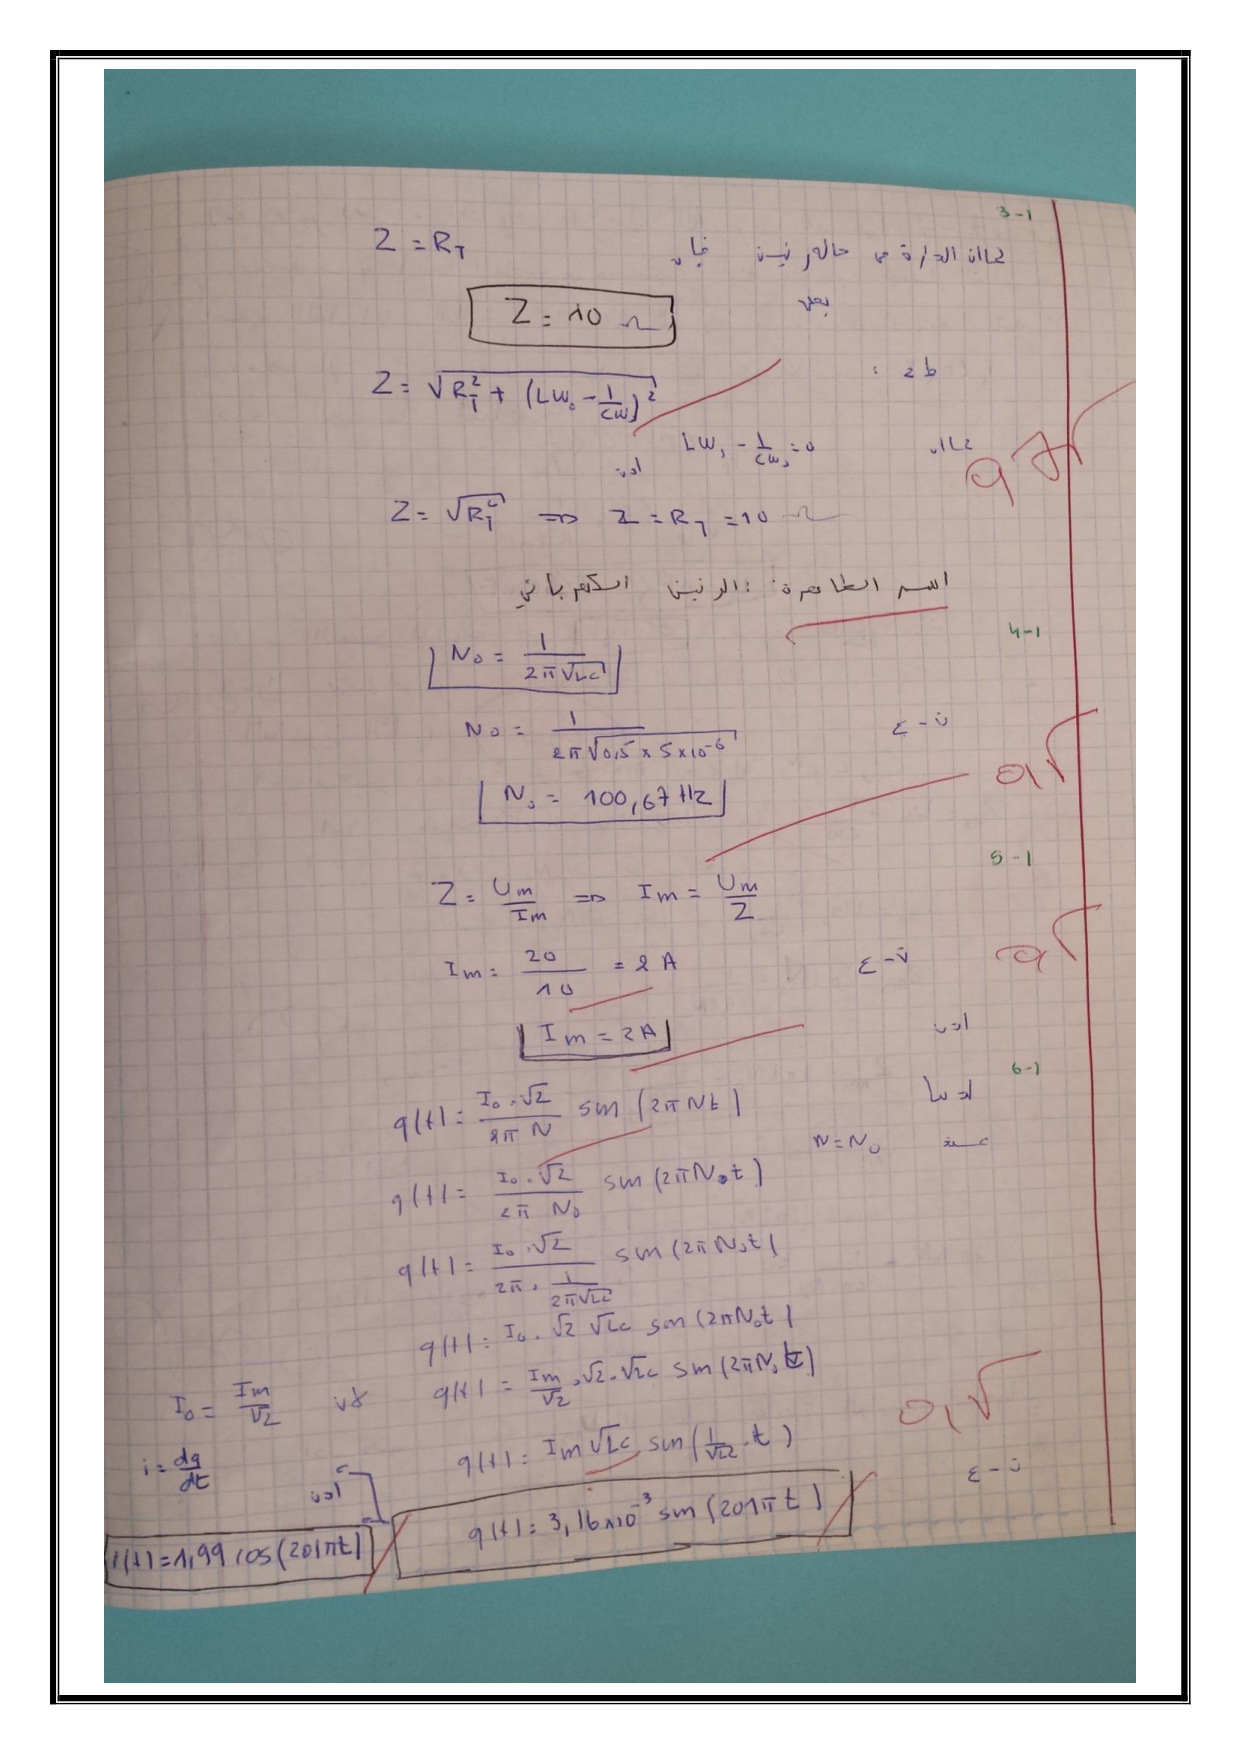 3-1
بما ان الدارة في حالة رنين فإن Z = R_T
يعني
Z = 10 Ω
ط 2 : Z = √(R_T² + (Lω₀ - 1/Cω)²)
بما ان Lω₀ - 1/Cω₀ = 0
اذن
Z = √R_T² => Z = R_T = 10 Ω
اسم الظاهرة : الرنين الكهربائي
4-1
N₀ = 1/(2π√LC)
ت - ع N₀ = 1/(2π√(0,5 × 5×10⁻⁶))
N₀ = 100,67 Hz
5-1
Z = Um/Im => Im = Um/Z
ت - ع Im = 20/10 = 2 A
اذن Im = 2A
6-1
لدينا q(t) = I₀.√2/(2π N) sin(2πNt)
عند N = N₀
q(t) = I₀.√2/(2π N₀) sin(2πN₀t)
q(t) = I₀.√2/(2π.1/(2π√LC)) sin(2πN₀t)
q(t) = I₀.√2 √LC sin(2πN₀t)
q(t) = Im/√2.√2.√LC sin(2πN₀t)
لان I₀ = Im/√2
q(t) = Im√LC sin(1/√LC.t)
i = dq/dt
ت - ع
q(t) = 3,16×10⁻³ sin(201πt)
اذن
i(t) = 1,99 cos(201πt)